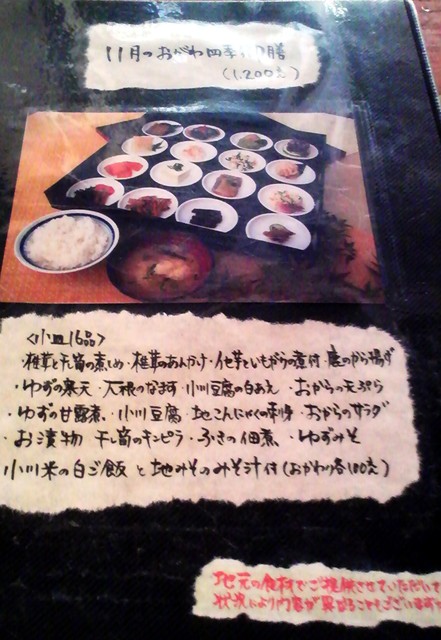 11月のおがわ四季の膳
(1,200円)
<小皿16品>
・椎茸と干筍の煮しめ・椎茸のあんかけ・里芋といもがらの煮付・鹿のから揚げ
・ゆずの寒天・大根のなます・小川豆腐の白あえ・おからの天ぷら
・ゆずの甘露煮・小川豆腐・地こんにゃくの刺身・おからのサラダ
・お漬物 干し筍のキンピラ・ふきの佃煮・ゆずみそ
小川米の白ご飯と地みそのみそ汁付(おかわり各100円)
地元の食材でご提供させていただいて
状況により内容が異なることもございます